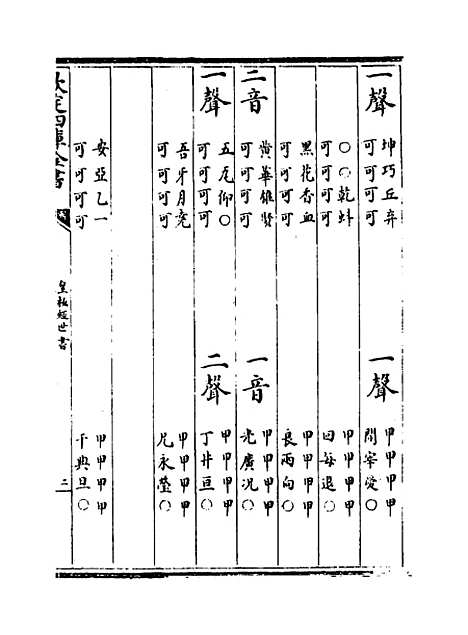 一聲
坤巧丘弃
可可可可
一聲
甲甲甲甲
開宰愛〇
〇〇乾蚪
可可可可
甲甲甲甲
回每退〇
黑花香血
可可可可
甲甲甲甲
良兩向〇
二音
黄華雄賢
可可可可
一音
甲甲甲甲
光廣況〇
一聲
五瓦仰〇
可可可可
二聲
甲甲甲甲
丁井亘〇
吾牙月堯
可可可可
甲甲甲甲
兄永瑩〇
安亞乙一
可可可可
甲甲甲甲
千典旦〇
欽定四庫全書
皇極經世書
二